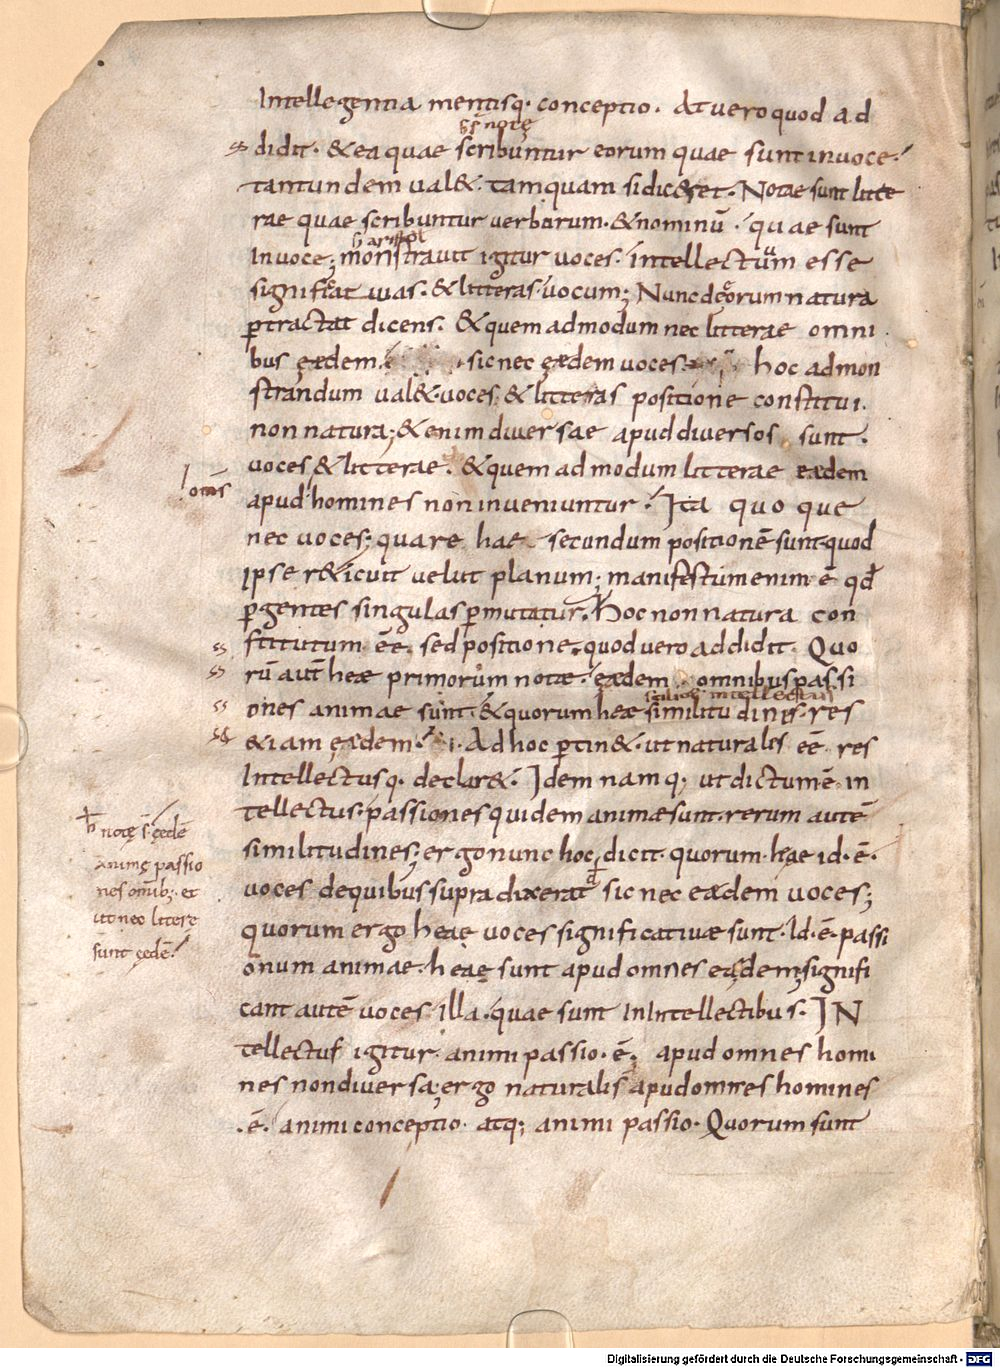 Intellegentia mentisq· conceptio· At uero quod ad
s notę
didit· & ea quae scribuntur eorum quae sunt in uoce·
tantundem ual&· tamquam si dicer&· Notae sunt litte
rae quae scribuntur uerborum· & nominū· quae sunt
h aristot
In uoce; monstrauit igitur uoces· intellectuum esse
significatiuas· & litteras uocum; Nunc de eorum natura
ꝑtractat dicens· & quem ad modum nec litterae omni
bus ęaedem· sic nec ęaedem uoces· hoc ad mon
strandum ual& uoces & litteras positione constitui·
non natura; & enim diuersae apud diuersos sunt·
uoces & litterae· & quem ad modum litterae eaedem
omīs
apud homines non inueniuntur· Ita quo que
nec uoces; quare hae secundum positionē sunt quod
ipse r&icuit uelut planum; manifestum enim ē qđ
ꝑ gentes singulas ꝑmutatur· Hoc non natura con
stitutum ēē sed positione· quod uero addidit· Quo
rū aut heae primorum notae· eaedem omnibus passi
intellectus
ones animae sunt· & quorum heae similitudines· res
& iam eaedem· Ad hoc ꝑtin& · ut naturalis ēē res
Intellectusq· declar&· Idem namq; ut dictum ē in
tellectus· passiones quidem animae sunt· rerum autē
similitudines; ergo nunc hoc dicit· quorum hae id·ē·
uoces de quibus supra dixerat sic nec eaedem uoces;
quorum ergo heae uoces significatiuae sunt· Id·ē· passi
onum animae· heae sunt apud omnes eaędem; signifi
cant autē uoces illa· quae sunt In Intellectibus· IN
tellectus igitur· animi passio·ē· apud omnes homi
nes non diuersa; ergo naturalis apud omnes homines
·ē· animi conceptio· atq; animi passio· Quorum sunt
notę s ęedē
animę passio
nes omīb; et
ut nec litere
sunt ęedē
Digitalisierung gefördert durch die Deutsche Forschungsgemeinschaft - DFG